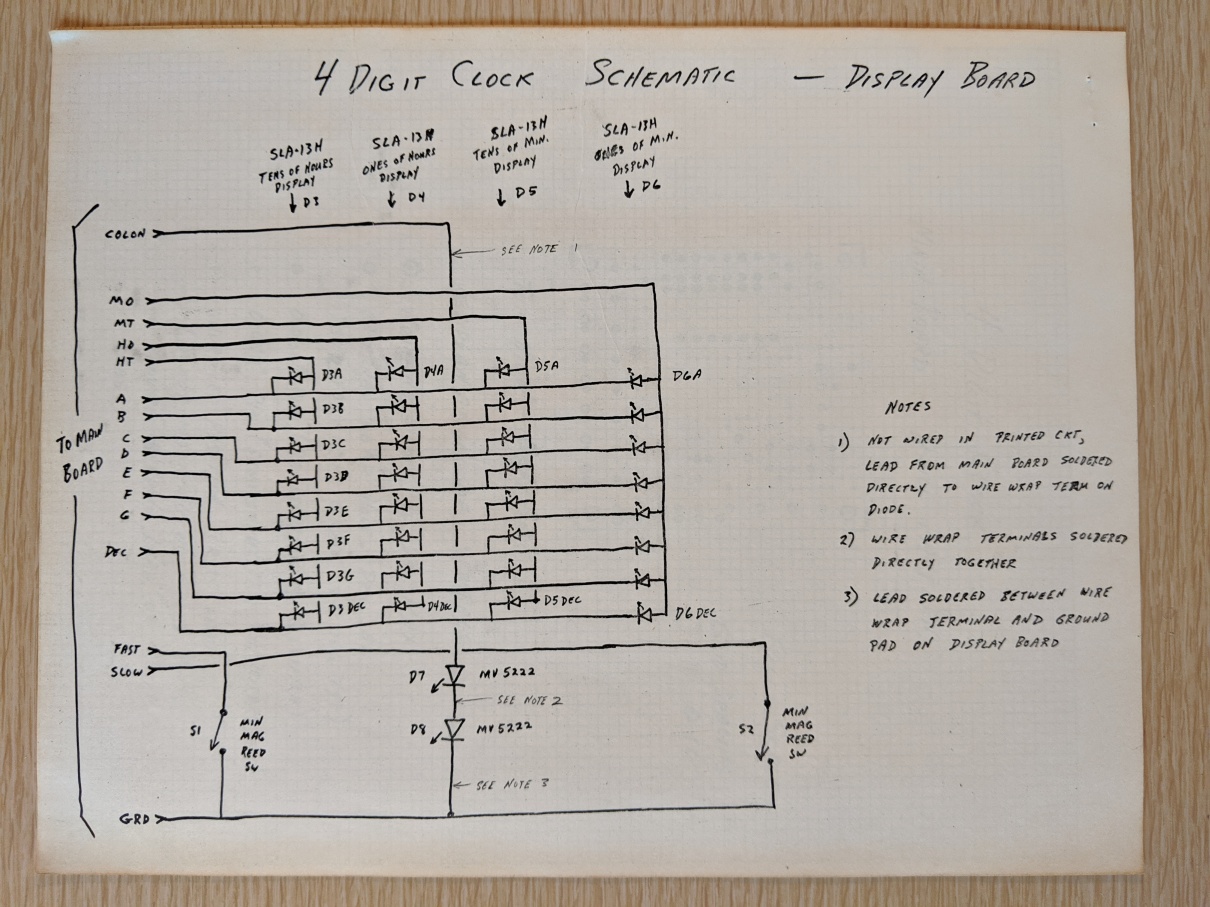 4 DIGIT CLOCK SCHEMATIC — DISPLAY BOARD
SLA-13H
TENS OF HOURS
DISPLAY
↓ D3
SLA-13H
ONES OF HOURS
DISPLAY
↓ D4
SLA-13H
TENS OF MIN.
DISPLAY
↓ D5
SLA-13H
ONES OF MIN.
DISPLAY
↓ D6
COLON
SEE NOTE 1
MO
MT
HO
HT
A
B
C
D
E
F
G
DEC
TO MAIN
BOARD
D3A
D4A
D5A
D6A
D3B
D3C
D3D
D3E
D3F
D3G
D3 DEC
D4 DEC
D5 DEC
D6 DEC
FAST
SLOW
D7
MV 5222
SEE NOTE 2
D8
MV 5222
SEE NOTE 3
S1
MIN
MAG
REED
SW
S2
MIN
MAG
REED
SW
GRD
NOTES
1) NOT WIRED IN PRINTED CKT,
LEAD FROM MAIN BOARD SOLDERED
DIRECTLY TO WIRE WRAP TERM ON
DIODE.
2) WIRE WRAP TERMINALS SOLDERED
DIRECTLY TOGETHER
3) LEAD SOLDERED BETWEEN WIRE
WRAP TERMINAL AND GROUND
PAD ON DISPLAY BOARD